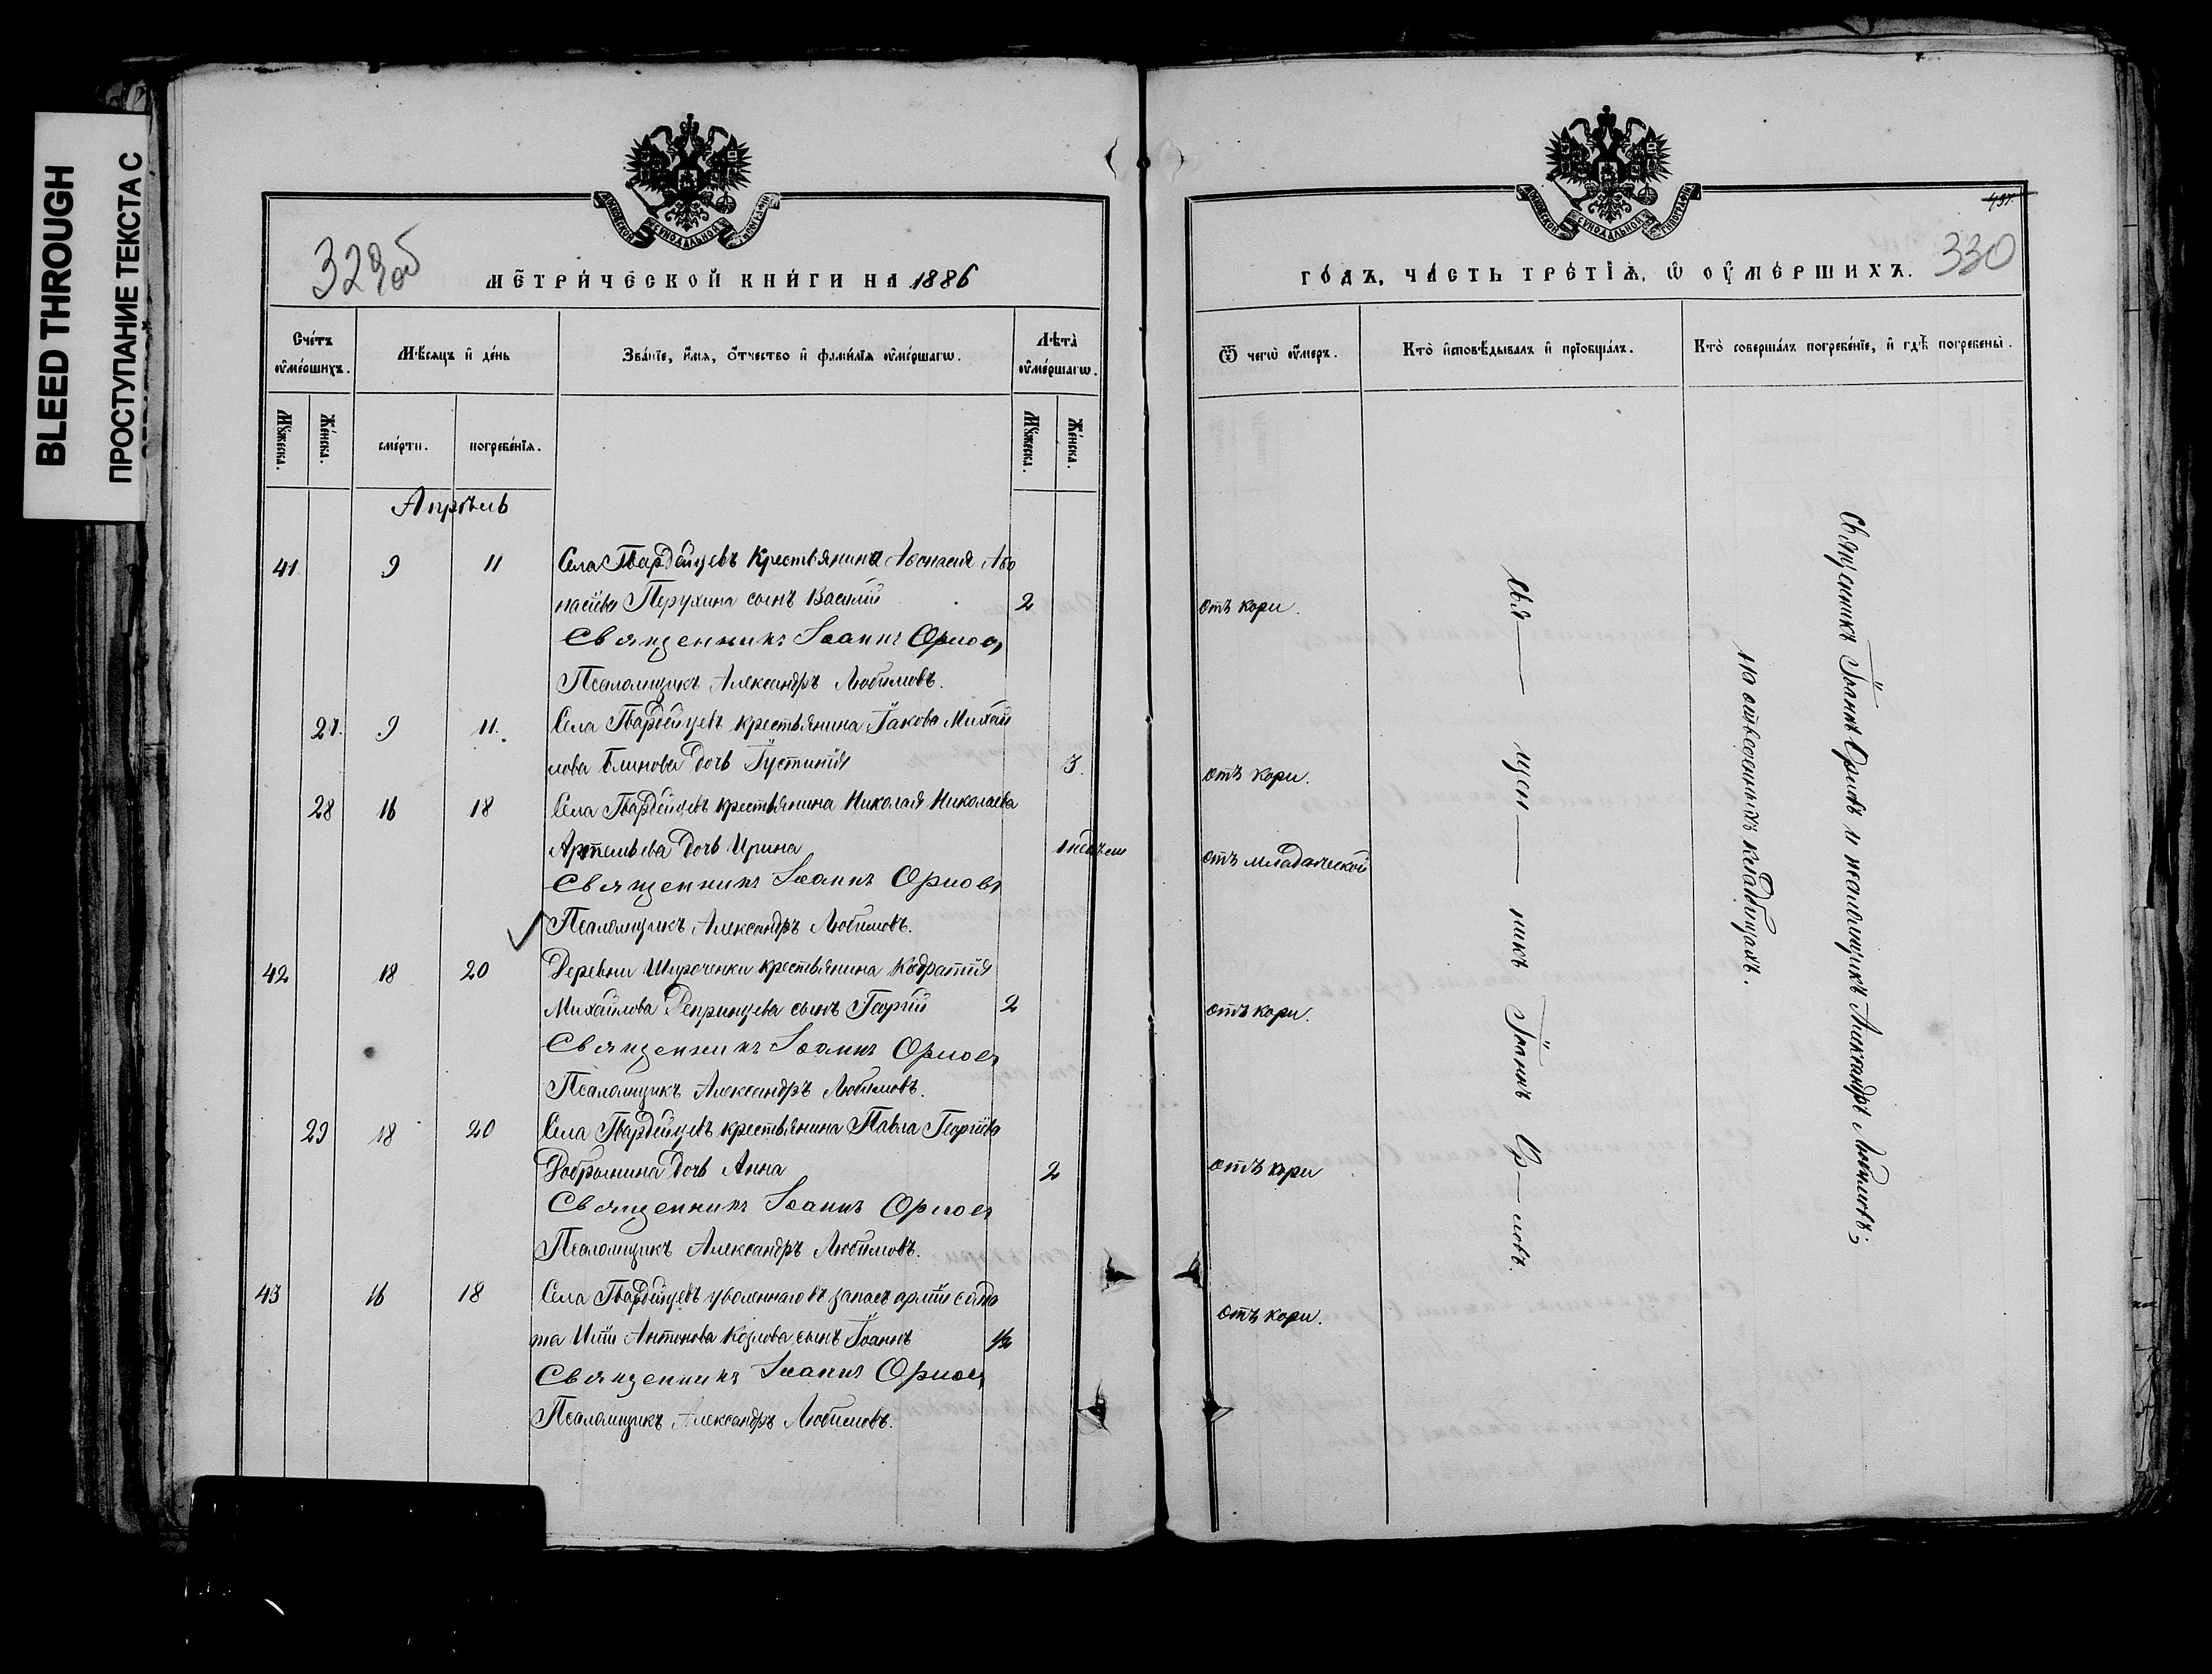 BLEED THROUGH
ПРОСТУПАНИЕ ТЕКСТА С
329об
МЕТРИЧЕСКОЙ КНИГИ НА 1886
Счетъ умершихъ.
Мѣсяцъ и день
Званіе, имя, отчество и фамилія умершагѡ.
Лѣта умершагѡ.
Мужеска.
Женска.
смерти.
погребенія.
Мужеска.
Женска.
Апрѣль
41 9 11 Села Гвардейцевъ крестьянина Аѳонасія Аѳо
насіева Перухина сынъ Василій 2
Священникъ Іоаннъ Орловъ
Псаломщикъ Александръ Любимовъ.
27. 9 11. Села Гвардейцевъ крестьянина Іакова Михай
лова Блинова дочь Іустинія 3.
28 16 18 Села Гвардейцевъ крестьянина Николая Николаева
Артемьева дочь Ирина
Священникъ Іоаннъ Орловъ
Псаломщикъ Александръ Любимовъ.
42 18 20 Деревни Широченки крестьянина Кодратія
Михайлова Репринцева сынъ Георгій 2
Священникъ Іоаннъ Орловъ
Псаломщикъ Александръ Любимовъ.
29 18 20 Села Гвардейцевъ крестьянина Павла Георгіева
Добрынина дочь Анна 2
Священникъ Іоаннъ Орловъ
Псаломщикъ Александръ Любимовъ.
43 16 18 Села Гвардейцевъ уволеннаго въ запасъ арміи солда
та Иліи Антонова Козлова сынъ Іоаннъ 1/2
Священникъ Іоаннъ Орловъ
Псаломщикъ Александръ Любимовъ.
330
ГОДЪ, ЧАСТЬ ТРЕТІЯ, Ѡ УМЕРШИХЪ.
Ѿ чегѡ умеръ.
Кто исповѣдывалъ и пріобщалъ.
Кто совершалъ погребеніе, и гдѣ погребены.
отъ кори.
отъ кори.
отъ младенческой
отъ кори.
отъ кори
отъ кори.
Свя— щен— никъ Іоаннъ Ор—ловъ.
Священникъ Іоаннъ Орловъ и псаломщикъ Александръ Любимовъ;
на отведенныхъ кладбищахъ.